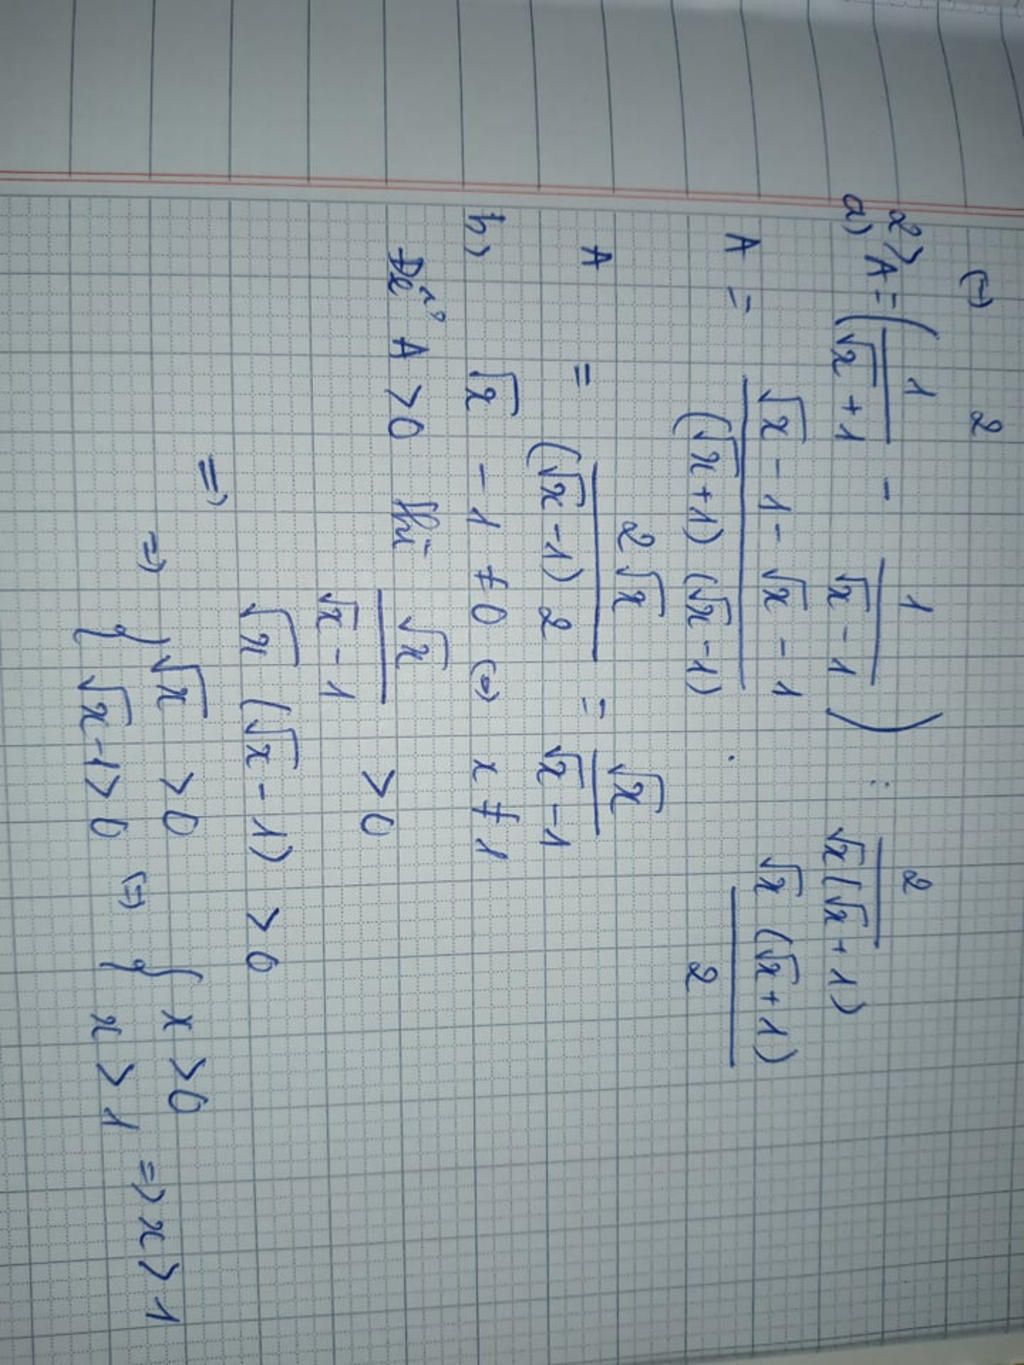 (=) 2
2)
a) A = ( 1/(√x + 1) - 1/(√x - 1) ) : 2/(√x(√x + 1))
A = (√x - 1 - √x - 1)/((√x + 1)(√x - 1)) . (√x(√x + 1))/2
A = 2√x/((√x - 1) 2) = √x/(√x - 1)
b) √x - 1 ≠ 0 (=) x ≠ 1
Để A > 0 thì √x/(√x - 1) > 0
=) √x (√x - 1) > 0
=) { √x > 0 (=) { x > 0 => x > 1
{ √x - 1 > 0 { x > 1